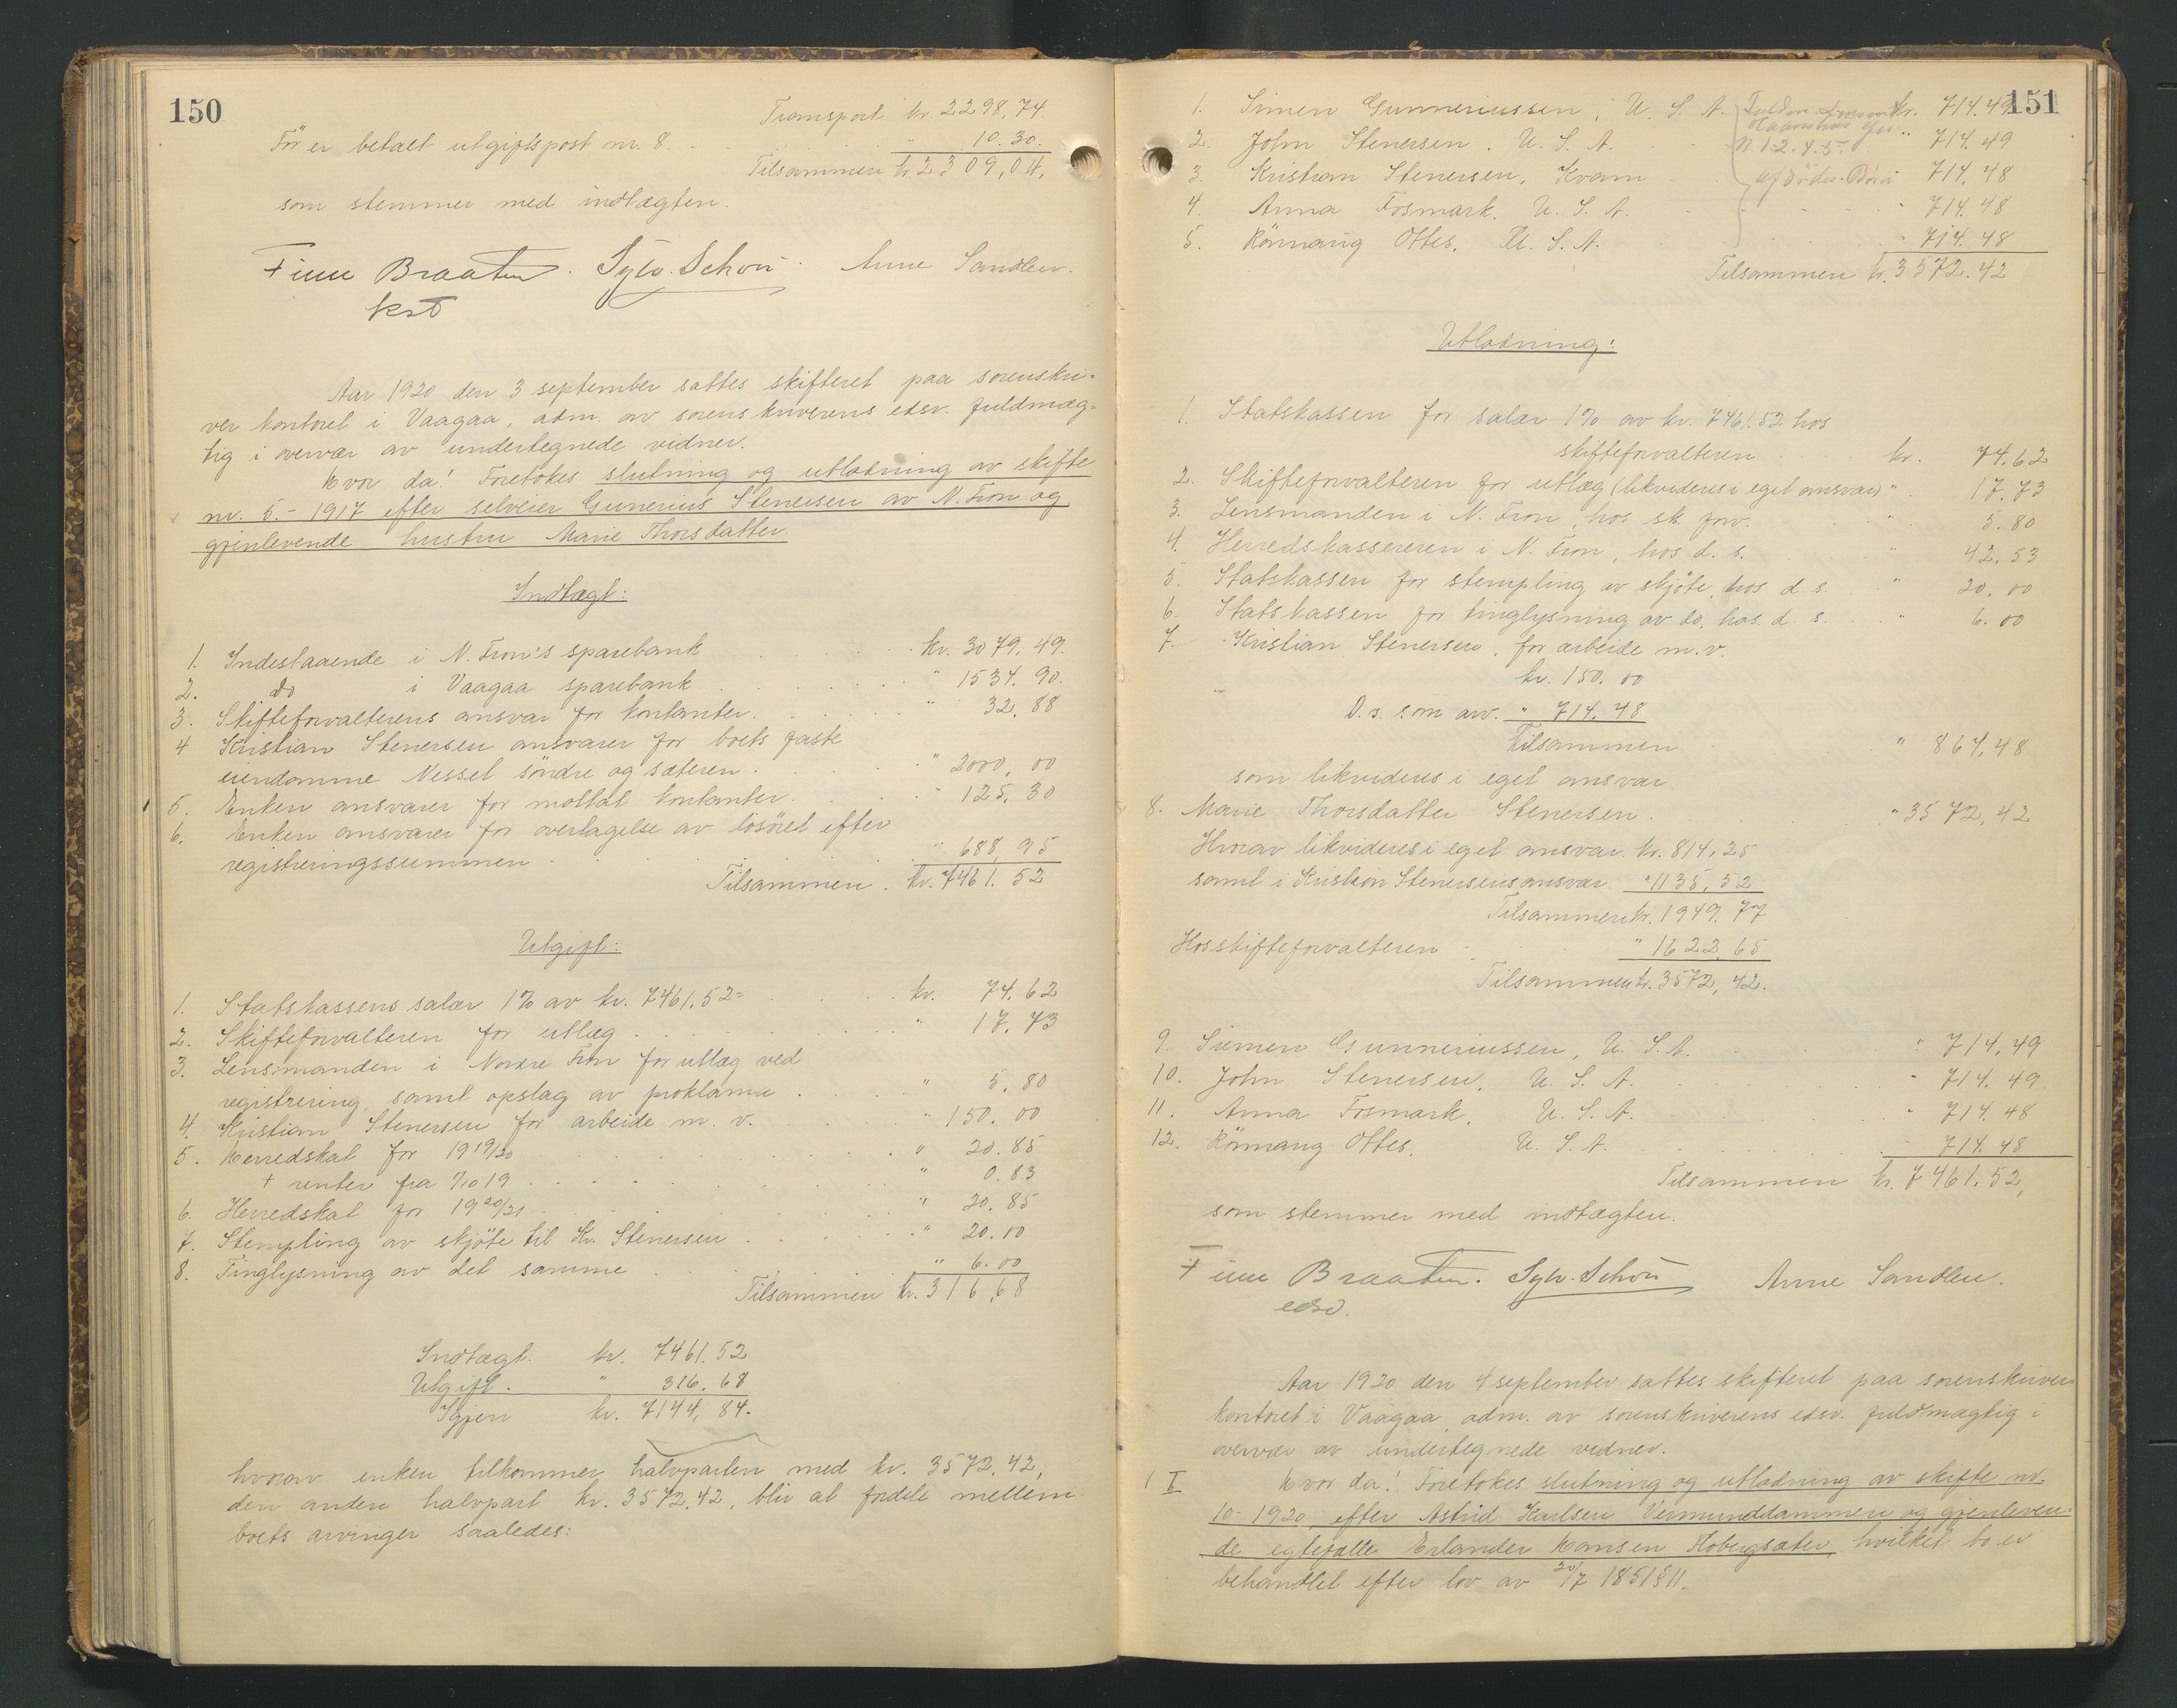 150
Transport kr. 2298,74
Før er betalt utgiftspost nr. 8. " 10.30.
Tilsammen kr. 2309,04,
som stemmer med indtægten.
Finn Braaten. Sylv. Schou. Anne Sandlen.
kst
Aar 1920 den 3 september sattes skifteret paa sorenskri-
ver kontoret i Vaagaa, adm. av sorenskriverens edsv. fuldmæg-
tig i overvær av undertegnede vidner.
Hvor da! Foretokes slutning og utlodning av skifte
nr. 5.- 1917 efter selveier Gunerius Stenersen av N. Fron og
gjenlevende hustru Marie Thorsdatter.
Indtægt:
1. Indestaaende i N. Fron's sparebank kr. 3079,49.
2. do i Vaagaa sparebank " 1534.90.
3. Skifteforvalterens ansvar for kontanter. " 32,88
4 Kristian Stenersen ansvarer for boets faste
eiendomme Nessel søndre og sæteren. " 2000,00
5. Enken ansvarer for mottat kontanter. " 125,30
6. Enken ansvarer for overtagelse av løsøret efter
registreringssummen " 688,95
Tilsammen. kr. 7461.52
Utgift:
1. Statskassens salær 1% av kr. 7461.52= kr. 74.62
2. Skifteforvalteren for utlæg " 17.73
3. Lensmanden i Nordre Fron for utlæg ved
registrering, samt opslag av proklama " 5.80
4. Kristian Stenersen for arbeide m.v. " 150.00
5. Herredskat for 1919/20 " 20.85
+ renter fra 1/10 19 " 0.83
6. Herredskat for 1920/21 " 20.85
7. Stempling av skjøte til Kr. Stenersen " 20.00
8. Tinglysning av det samme " 6.00
Tilsammen kr. 316,68
Indtægt. kr. 7461.52
Utgift. " 316.68
Igjen kr. 7144,84.
hvorav enken tilkommer halvparten med kr. 3572.42,
den anden halvpart kr. 3572.42, blir at fordele mellem
boets arvinger saaledes:
151
1. Simen Gunneriussen, U.S.A. kr. 714.49
2. John Stenersen. U.S.A. " 714.49
n. 1.2.4.5.
3. Kristian Stenersen, Kvam " 714,48
4. Anna Fosmark. U.S.A. " 714.48
5. Rønnaug Ottes, U.S.A. " 714.48
Tilsammen kr. 3572.42
Utlodning:
1. Statskassen for salær 1% av kr. 7461.52 hos
skifteforvalteren kr. 74.62
2. Skifteforvalteren for utlæg (likvideres i eget ansvar) " 17.73
3. Lensmanden i N. Fron, hos sk. forv. " 5.80
4. Herredskassereren i N. Fron, hos d. s. " 42.53
5. Statskassen for stempling av skjøte, hos d. s. " 20.00
6. Statskassen for tinglysning av do. hos d. s. " 6.00
7. Kristian Stenersen, for arbeide m.v.
kr. 150.00
D. s. som arv. " 714.48
Tilsammen " 864,48
som likvideres i eget ansvar
8. Marie Thorsdatter Stenersen. " 3572,42
Hvorav likvideres i eget ansvar kr. 814,25
samt i Kristian Stenersens ansvar " 1135,52
Tilsammen kr. 1949.77
Hos skifteforvalteren " 1622.65
Tilsammen kr. 3572,42.
9. Simen Gunneriussen, U.S.A. " 714,49
10. John Stenersen, U.S.A. " 714.49
11. Anna Fosmark, U.S.A. " 714.48
12. Rønnaug Ottes, U.S.A. " 714.48
Tilsammen kr. 7461.52,
som stemmer med indtægten.
Finn Braaten. Sylv. Schou Anne Sandlen.
edsv.
Aar 1920 den 4 september sattes skifteret paa sorenskriver-
kontoret i Vaagaa, adm. av sorenskriverens edsv. fuldmægtig i
overvær av undertegnede vidner.
I Hvor da! Foretokes slutning og utlodning av skifte nr.
10- 1920 efter Astrid Karlsen Vermunddammen og gjenleven-
de egtefælle Erlander Hansen Flobergsæter, hvilket bo er
behandlet efter lov av 30/7 1851 § 11.